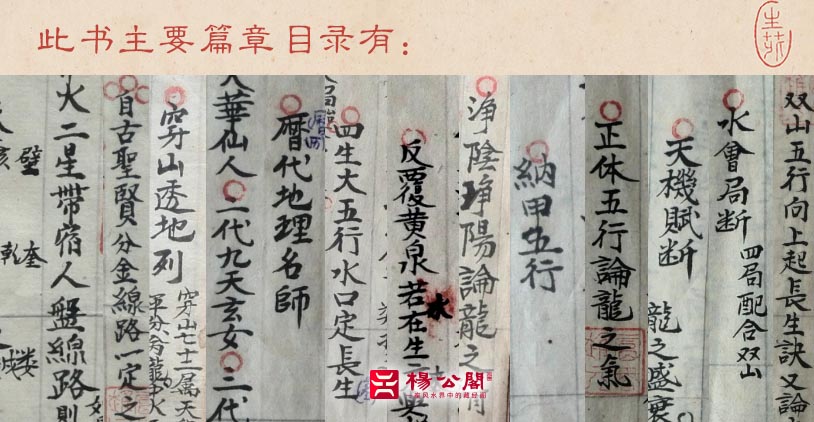 此书主要篇章目录有：
双山五行向上起長生訣又論
水會局断
四局配合双山
天機賦断
龍之盛衰
正体五行論龍之氣
納甲五行
净陰净陽論龍之
反覆黄泉若在生
水
四生大五行水口定長生
曆代地理名師
華仙人 二代九天玄女 三代
穿山透地列
穿山七十二属天
平分六十龍
自古聖賢分金線路一定之
火二星帶宿人盤線路則
壁
奎
乾
娄
楊公閣